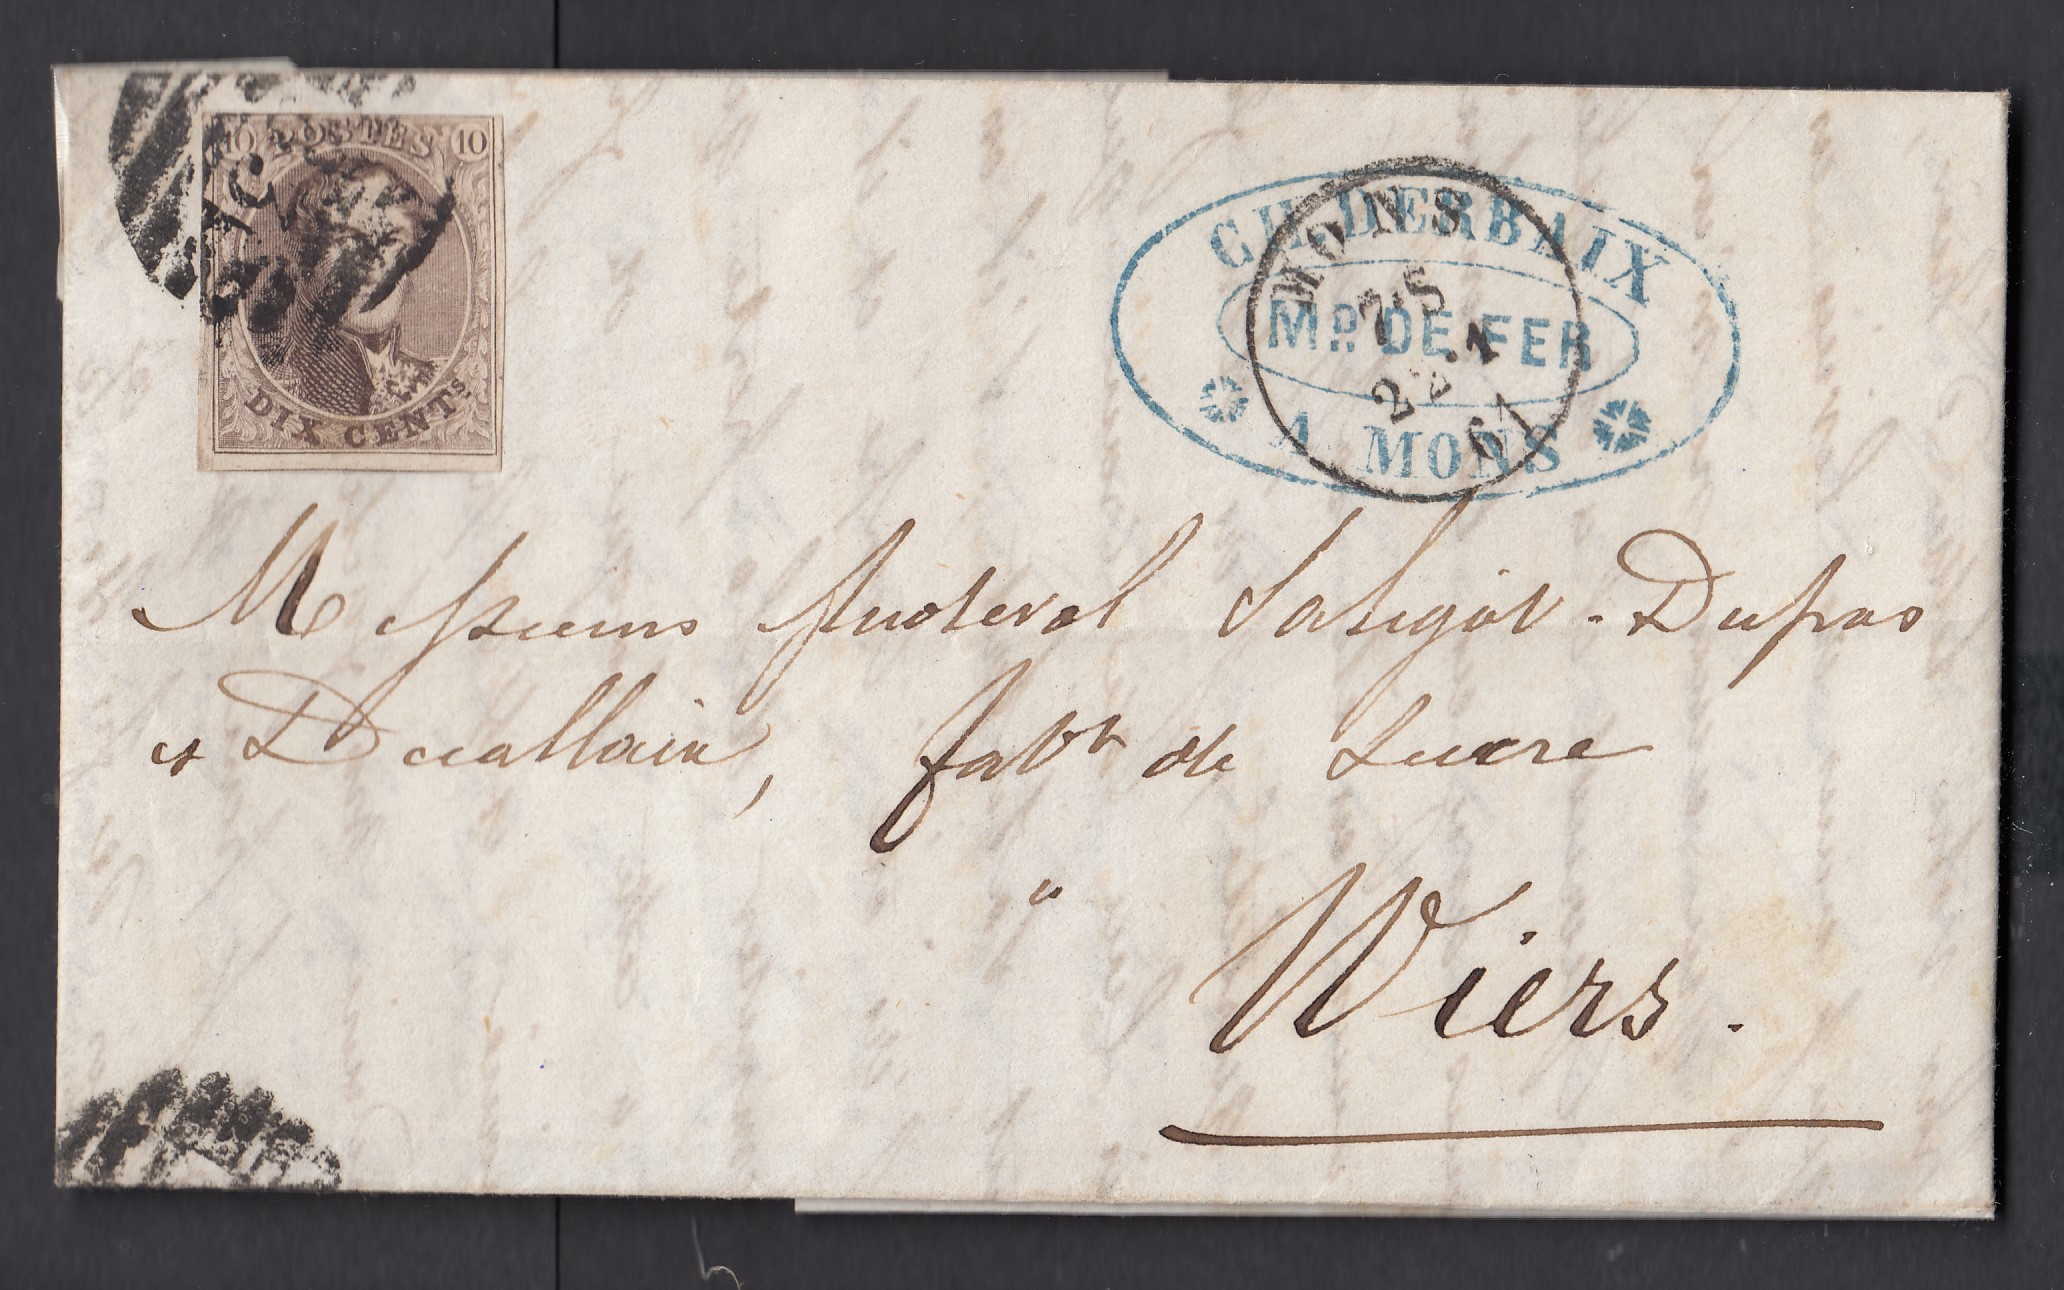 10 POSTES 10
DIX CENTS
CH. DERBAIX
MD. DE FER
A MONS
MONS
7S
22
61
Messieurs
et Decallain, fabts de Sucre
"
Wiers.